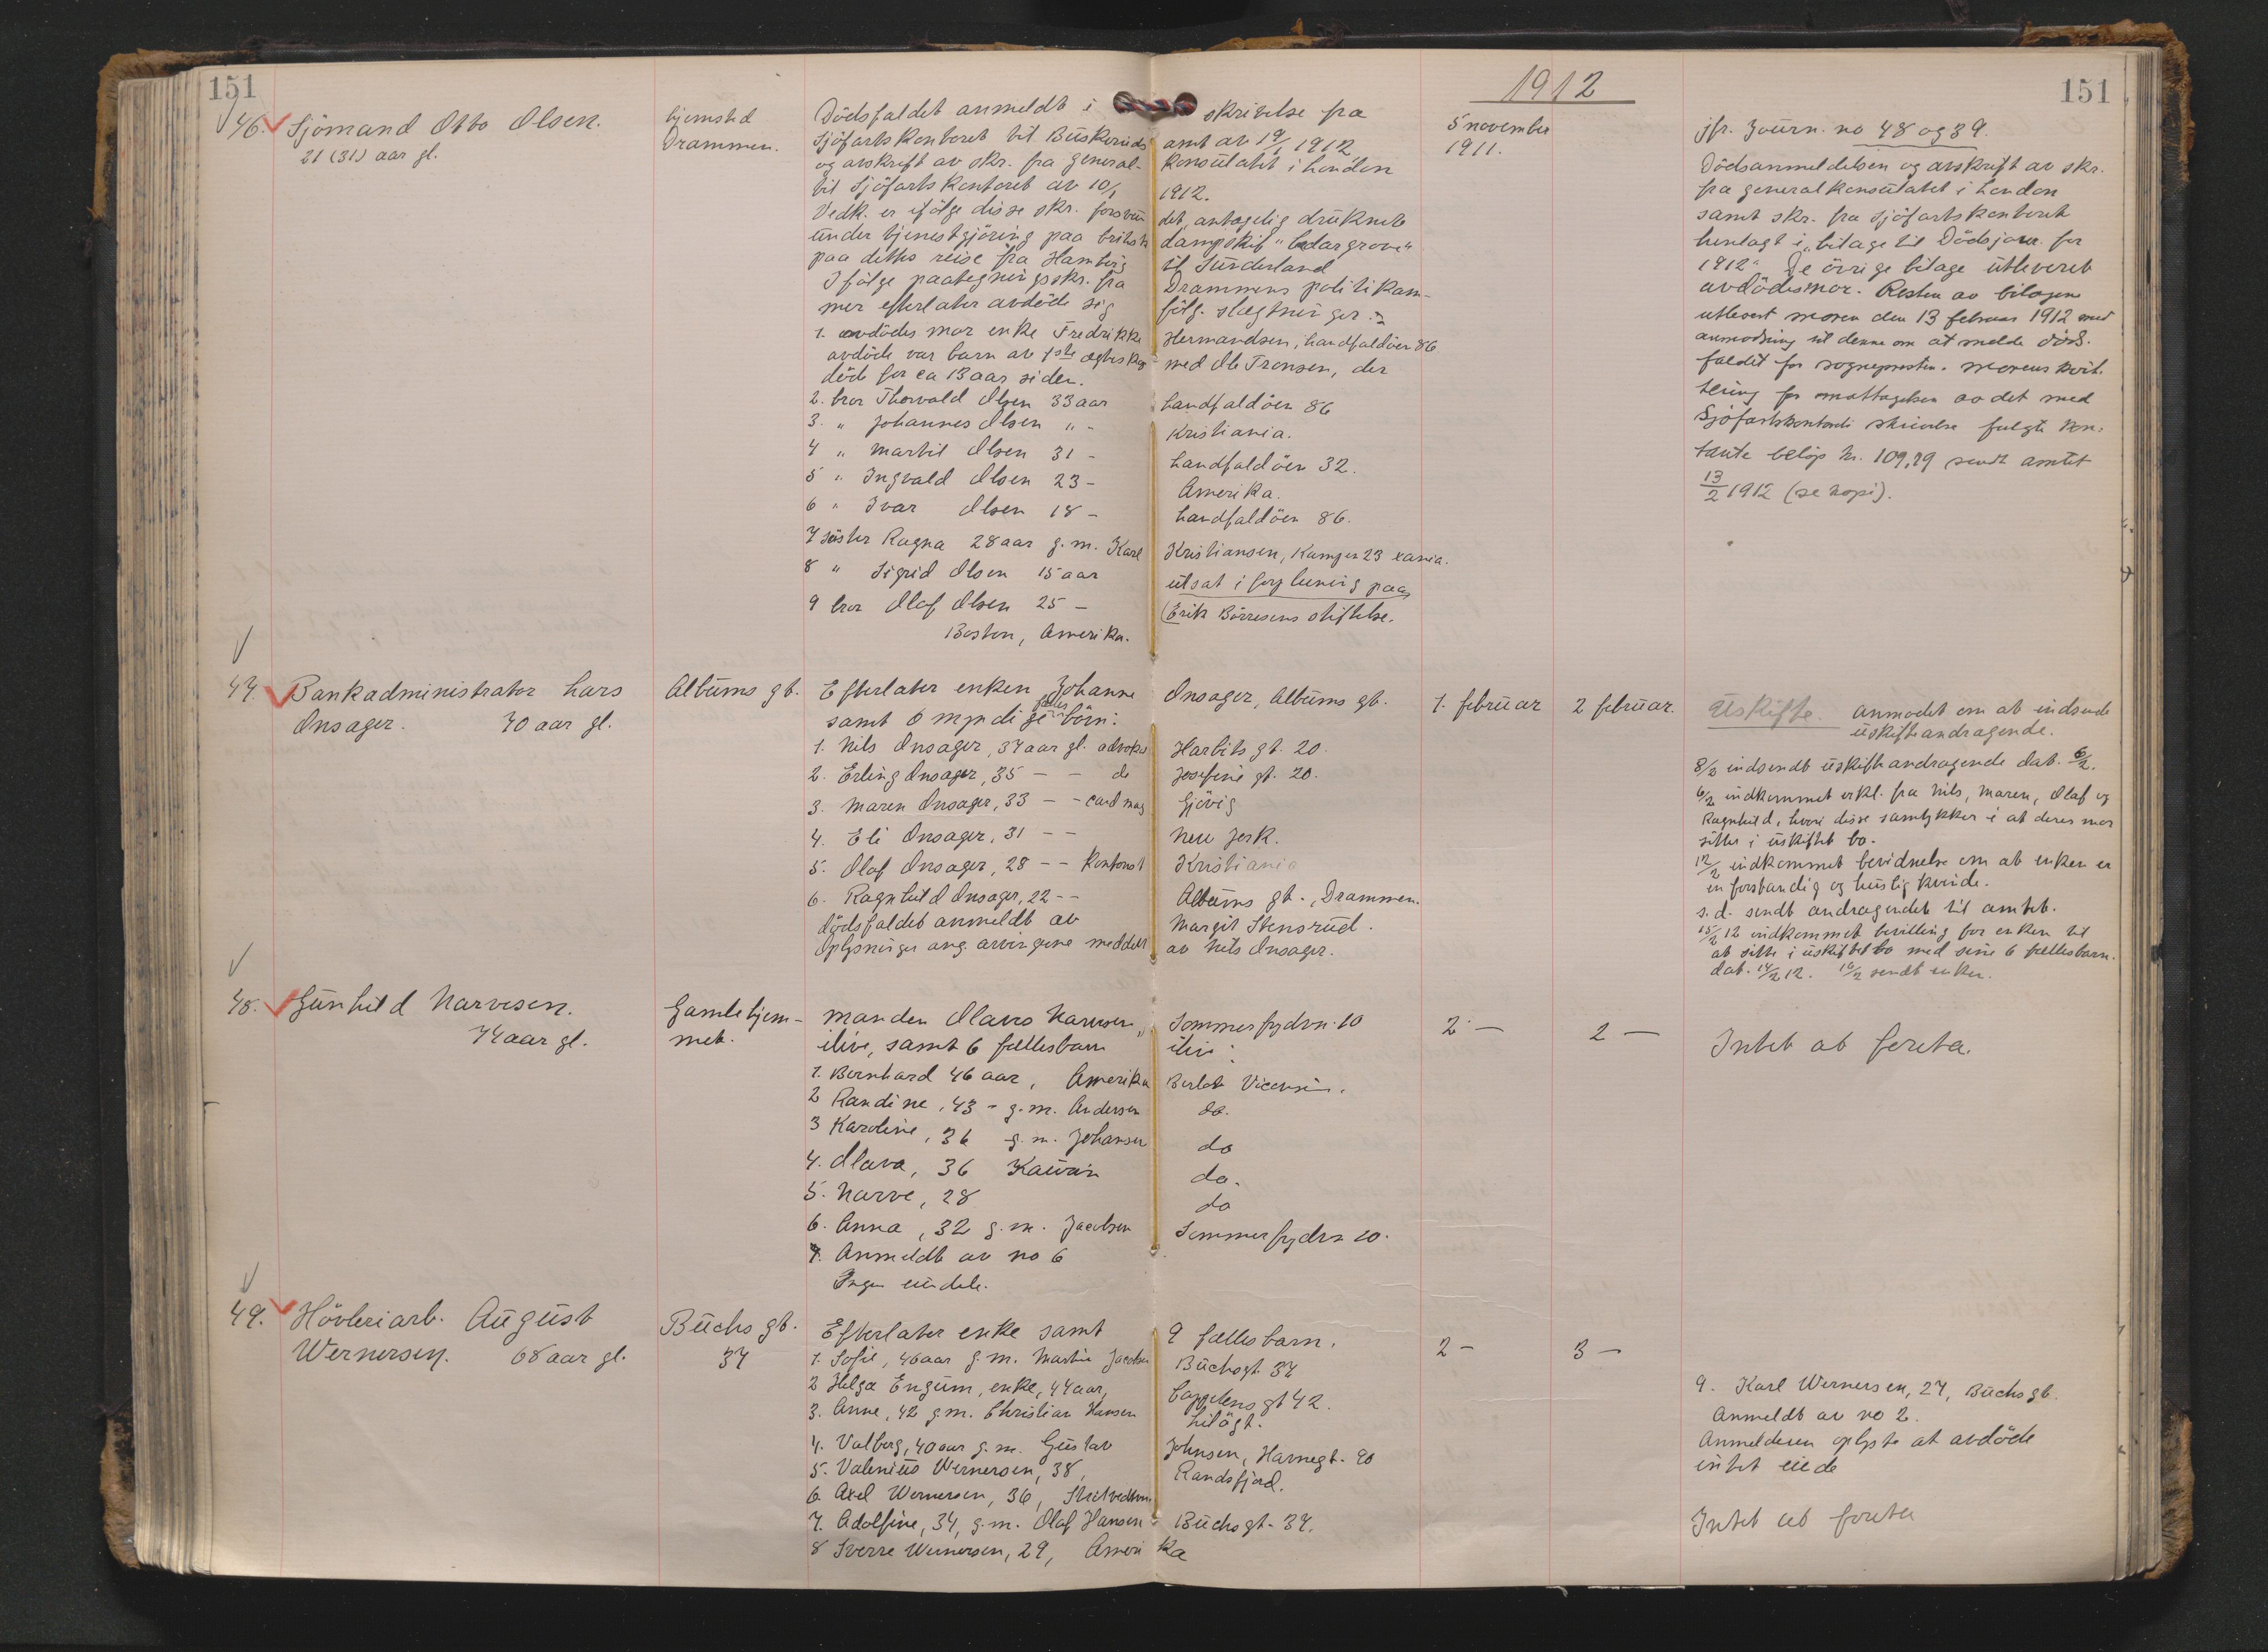 151
1912
151
46. Sjömand Otto Olsen.
21 (31) aar gl.
hjemsted
Drammen.
Dödsfaldet anmeldt i skrivelse fra
Sjöfartskontoret til Buskeruds amt av 19/1 1912
og avskrift av skr. fra general- konsulatet i London
til Sjöfartskontoret av 10/1 1912.
Vedk. er ifölge disse skr. forsvun det, antagelig druknet
under tjenestgjöring paa britisk dampskib "Cedargrove"
paa dettes reise fra Hamburg til Sunderland
Ifölge paategningsskr. fra Drammens politikam-
mer efterlater avdöde sig fölg. slegtninger:
1. avdödes mor enke Fredrikke Hermandsen, Landfaldöen 86
avdöde var barn av 1ste egteskap med Ole Tronsen, der
döde for ca 13 aar siden.
2. bror Thorvald Olsen 33 aar Landfaldöen 86
3. " Johannes Olsen " - Kristiania.
4 " Martil Olsen 31 - Landfaldöen 32.
5 " Ingvald Olsen 23 - Amerika.
6 " Ivar Olsen 18 - Landfaldöen 86.
7 söster Ragna 28 aar g.m. Karl Kristiansen, Kampen 23 xania.
8 " Sigrid Olsen 15 aar utsat i forpleining paa
9 bror Olaf Olsen 25 - Erik Börresens stiftelse.
Boston, Amerika.
5 november
1911.
jfr. Journ. no 48 og 39.
Dödsanmeldelsen og avskrift av skr.
fra generalkonsulatet i London
samt skr. fra Sjöfartskontoret
henlagt i "bilage til Dödsjour. for
1912" De övrige bilage utleveret
avdödes mor. Resten av bilagene
utlevert moren den 13 februar 1912 med
anmodning til denne om at melde döds-
faldet for sognepresten. Morens kvit-
tering for mottagelsen av det med
Sjöfartskontorets skrivelse fulgte kon-
tante belöp kr. 109,19 sendt amtet
13/2 1912 (se kopi).
47. Bankadministrator Lars
Onsager. 70 aar gl.
Albums gt.
Efterlater enken Johanne Onsager, Albums gt.
samt 6 myndige felles börn:
1. Nils Onsager, 37 aar gl. advokat Harbits gt. 20.
2. Erling Onsager, 35 - - do Josefine gt. 20.
3. Maren Onsager, 33 - - cand mag Gjövig
4. Eli Onsager, 31 - - New Jork.
5. Olaf Onsager, 28 - - kontorist Kristiania
6. Ragnhild Onsager, 22 - - Albums gt., Drammen.
dödsfaldet anmeldt av Margit Stensrud.
Oplysninger ang. arvingene meddelt av Nils Onsager.
1. februar
2 februar.
Uskifte. Anmodet om at indsende
uskifteandragende.
8/2 indsendt uskifteandragende dat. 6/2.
6/2 indkommet erkl. fra Nils, Maren, Olaf og
Ragnhild, hvori disse samtykker i at deres mor
sitter i uskiftet bo.
12/2 indkommet bevidnelse om at enken er
en forstandig og huslig kvinde.
s.d. sendt andragendet til amtet.
15/2 12 indkommet bevilling for enken til
at sitte i uskiftet bo med sine 6 fellesbarn.
dat. 14/2 12. 16/2 sendt enken.
48. Gunhild Narvesen.
74 aar gl.
Gamlehjem-
met.
Manden Olavus Narvesen, Sommerfrydvn. 10
ilive, samt 6 fellesbarn ilive:
1. Bernhard 46 aar, Amerika
2 Randine, 43 - g.m. Andersen do.
3 Karoline, 36 g.m. Johansen do
4. Olava, 36 do.
5. Narve, 28 do
6. Anna, 32 g.m. Jacobsen Sommerfrydvn 10.
7. Anmeldt av no 6
Ingen eiendele.
2 -
2 -
Intet at foreta.
49. Hövleriarb. August
Wernersen. 68 aar gl.
Buchs gt.
37
Efterlater enke samt 9 felles barn.
1. Sofie, 46 aar g.m. Martin Jacobsen Buchsgt. 37
2 Helga Engum, enke, 44 aar, Cappelens gt 42.
3. Anne, 42 g.m. Christian Hansen
4. Valborg, 40 aar g.m. Gustav Johnsen, Havnegt. 90
5. Valenius Wernersen, 38, Randsfjord.
6. Axel Wernersen, 36,
7. Adolfine, 34, g.m. Olaf Hansen Buchsgt. 37.
8 Sverre Wernersen, 29, Amerika
2 -
3 -
9. Karl Wernersen, 27, Buchs gt.
Anmeldt av no 2.
Anmelderen oplyste at avdöde
intet eiede
Intet at foreta